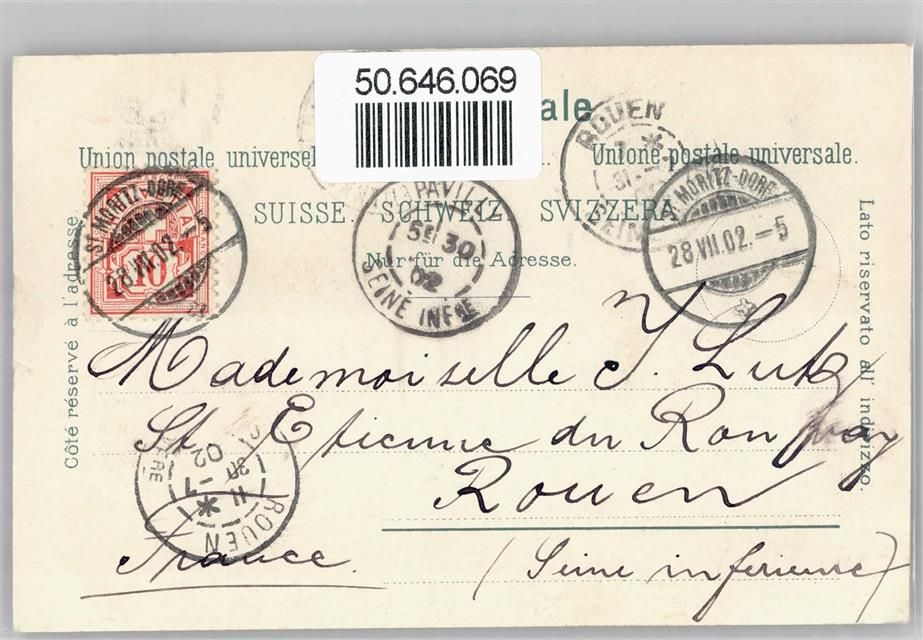 50.646.069
ale
Union postale universel
Unione postale universale.
SUISSE. SCHWEIZ. SVIZZERA
Nur für die Adresse.
Côté réservé à l'adresse.
Lato riservato all' indirizzo.
ST. MORITZ-DORF
28.VII.02.-5
10
PAVILL
5E 30
02
SEINE INFRE
ROUEN
31
SEINE
MORITZ-DORF
28.VII.02.-5
Mademoiselle J. Lutz
St Etienne du Rouvray
Rouen
(Seine inférieure)
France.
ROUEN
11
02